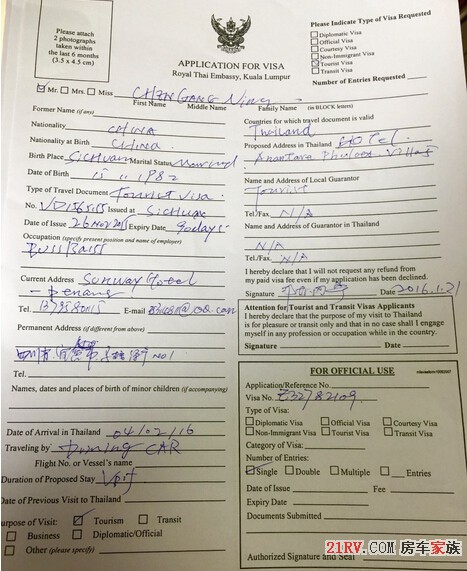 Please attach
2 photographs
taken within
the last 6 months
(3.5 x 4.5 cm)
APPLICATION FOR VISA
Royal Thai Embassy, Kuala Lumpur
Please Indicate Type of Visa Requested
Diplomatic Visa
Official Visa
Courtesy Visa
Non-Immigrant Visa
Tourist Visa
Transit Visa
Number of Entries Requested
Mr. Mrs. Miss CHENGANG
First Name Middle Name Family Name (in BLOCK letters)
Former Name (if any)
Nationality CHINA
Nationality at Birth CHINA
Birth Place SICHUAN Marital Status Married
Date of Birth 15 11 1982
Type of Travel Document Tourist Visa
No. Issued at SICHUAN
Date of Issue 26 Nov 2015 Expiry Date 90days
Occupation (specify present position and name of employer)
Current Address Sunway Hotel
- Penang
Tel. E-mail
Permanent Address (if different from above)
四川省 NO1
Tel.
Names, dates and places of birth of minor children (if accompanying)
Date of Arrival in Thailand 04/02/16
Traveling by CAR
Flight No. or Vessel's name
Duration of Proposed Stay
Date of Previous Visit to Thailand
Purpose of Visit: Tourism Transit
Business Diplomatic/Official
Other (please specify)
Countries for which travel document is valid
Thailand
Proposed Address in Thailand HOTEL
Anantara Villas
Name and Address of Local Guarantor
Tourist
Tel./Fax. N/A
Name and Address of Guarantor in Thailand
N/A
Tel./Fax. N/A
I hereby declare that I will not request any refund from
my paid visa fee even if my application has been declined.
Signature Date 2016.1.21
Attention for Tourist and Transit Visas Applicants
I hereby declare that the purpose of my visit to Thailand
is for pleasure or transit only and that in no case shall I engage
myself in any profession or occupation while in the country.
Signature Date
FOR OFFICIAL USE
Application/Reference No.
Visa No.
Type of Visa:
Diplomatic Visa Official Visa Courtesy Visa
Non-Immigrant Visa Tourist Visa Transit Visa
Category of Visa:
Number of Entries:
Single Double Multiple Entries
Date of Issue Fee
Expiry Date
Documents Submitted
Authorized Signature and Seal
21RV.COM 房车家族